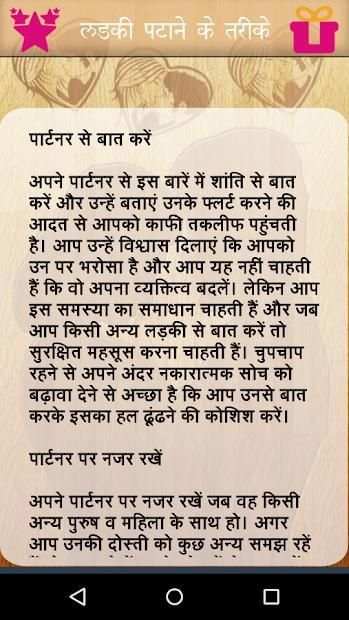 लडकी पटाने के तरीके
पार्टनर से बात करें
अपने पार्टनर से इस बारें में शांति से बात
करें और उन्हें बताएं उनके फ्लर्ट करने की
आदत से आपको काफी तकलीफ पहुंचती
है। आप उन्हें विश्वास दिलाएं कि आपको
उन पर भरोसा है और आप यह नहीं चाहती
हैं कि वो अपना व्यक्तित्व बदलें। लेकिन आप
इस समस्या का समाधान चाहती हैं और जब
आप किसी अन्य लड़की से बात करें तो
सुरक्षित महसूस करना चाहती हैं। चुपचाप
रहने से अपने अंदर नकारात्मक सोच को
बढ़ावा देने से अच्छा है कि आप उनसे बात
करके इसका हल ढूंढने की कोशिश करें।
पार्टनर पर नजर रखें
अपने पार्टनर पर नजर रखें जब वह किसी
अन्य पुरुष व महिला के साथ हो। अगर
आप उनकी दोस्ती को कुछ अन्य समझ रहें